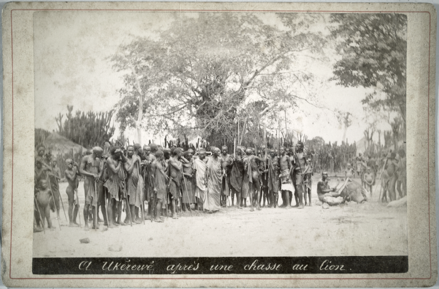 A Ukéréwé après une chasse au lion.